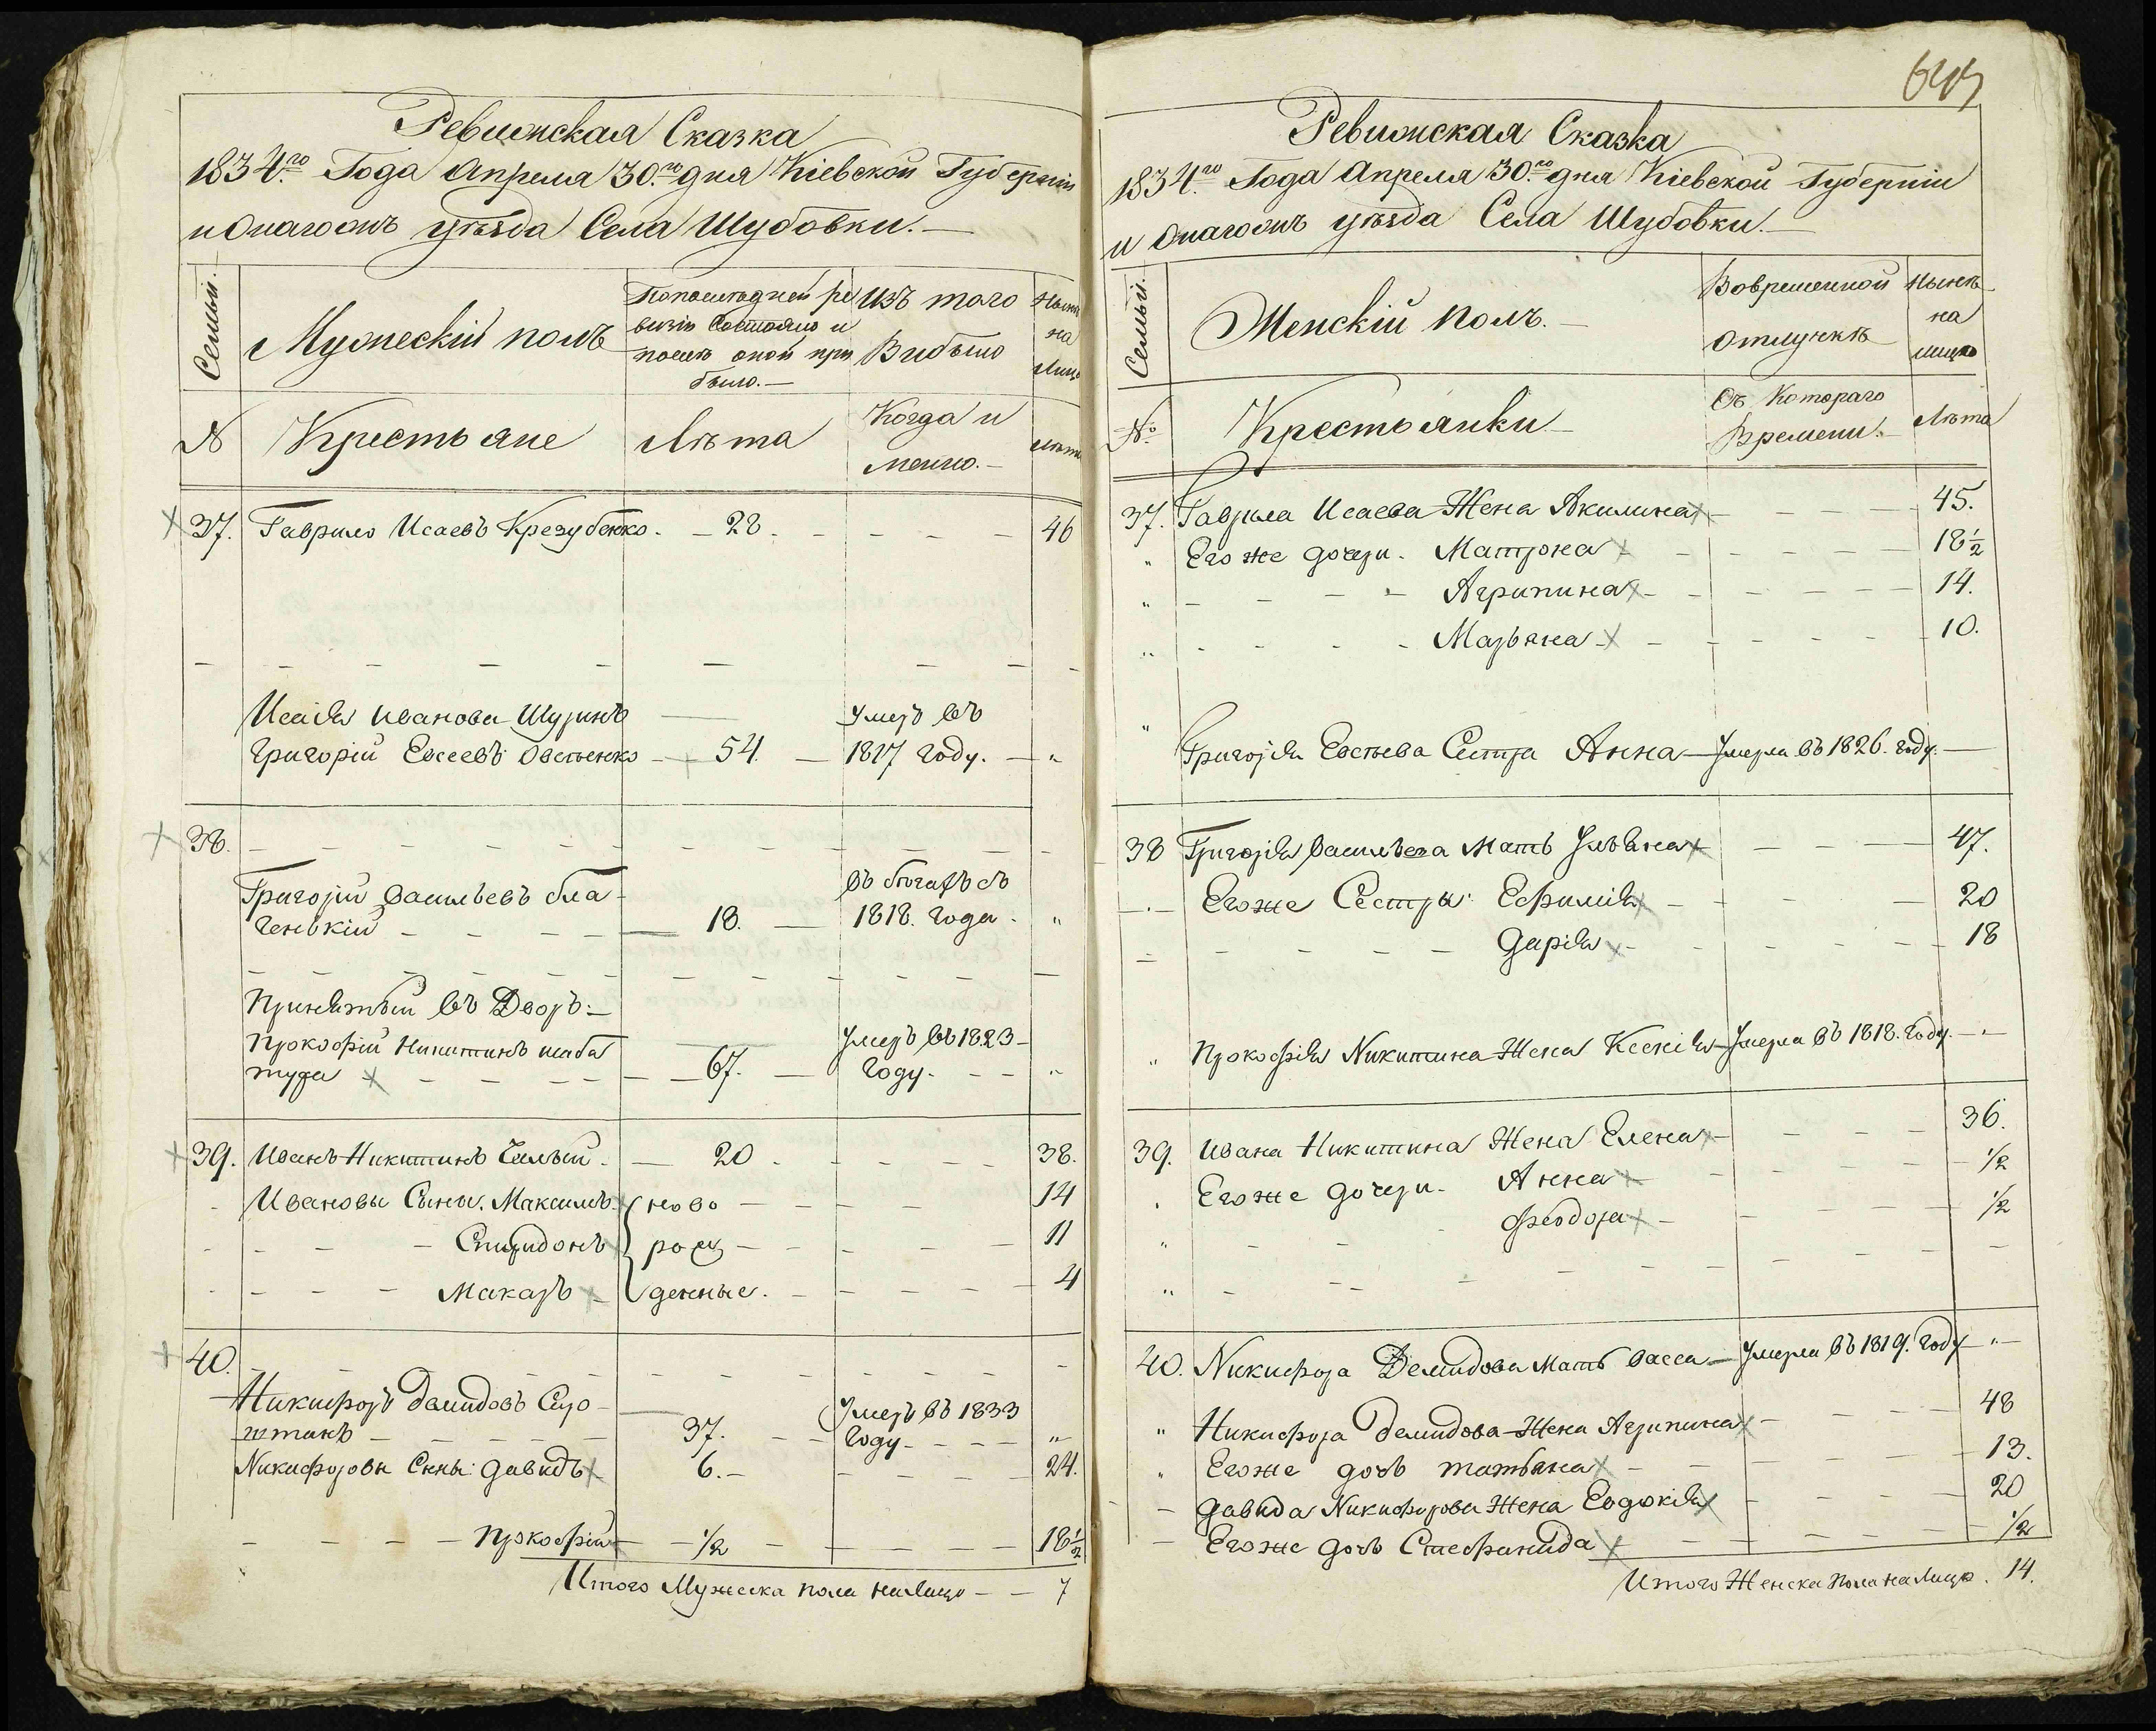 Ревижская Сказка
1834.го Года Апреля 30.го дня Кіевской Губерніи
уѣзда Села Шубовки.
Семьи.
Мужескій полъ
По последней ре
визіи состояло и
после оной при
было.
Изъ того
Выбыло
Ныне
на
Лицо
№
Крестьяне
Лѣта
Когда и
менно.
Лѣта
37. Гаврило Исаевъ Крезубенко. 28. 46
Исаія Иванова Шуринъ Умеръ въ
Григорій Евсеевъ Овсѣенко 54. 1817 году. "
38.
Григорій Васильевъ бла- въ бѣгахъ съ
Генькій 18. 1818. года. "
Принятый въ Дворъ:
Прокофій Никитинъ шаба Умеръ въ 1823
тура 67. году. "
39. Иванъ Никитинъ 20 38.
Ивановы Сыны. Максимъ ново 14
Спиридонъ рож 11
Макаръ денные. 4
40.
Никифоръ Демидовъ Умеръ въ 1833
37. году "
Никифоровы Сыны: Давидъ 6. 24.
Прокофій 1/2 18 1/2
Итого Мужеска пола на Лицо 7
Ревижская Сказка
1834.го Года Апреля 30.го дня Кіевской Губерніи
уѣзда Села Шубовки.
Семьи.
Женскій Полъ.
Во временной
отлучкѣ
Нынѣ
на
лицо
№
Крестьянки
Съ Котораго
Времени.
Лѣта
37. Гаврила Исаева Жена Акилина 45.
" Его же дочери. Матрона 18 1/2
" Агрипина 14.
" Марьяна 10.
" Григорія Евсѣева Сестра Анна Умерла въ 1826. году.
38 Григорія Васильева Мать Ульяна 47.
Его же Сестры: Ефимія 20
Дарія 18
" Прокофія Никитина Жена Ксенія Умерла въ 1818. году. "
39. Ивана Никитина Жена Елена 36.
Его же дочери. Анна 1/2
" Феодора 1/2
"
40. Никифора Демидова Мать Васса Умерла въ 1819. году "
" Никифора Демидова Жена Агрипина 48
" Его же дочь татьяна 13.
Давида Никифорова Жена Евдокія 20
Его же дочь Стефанида 1/2
Итого Женска Пола на Лицо. 14.